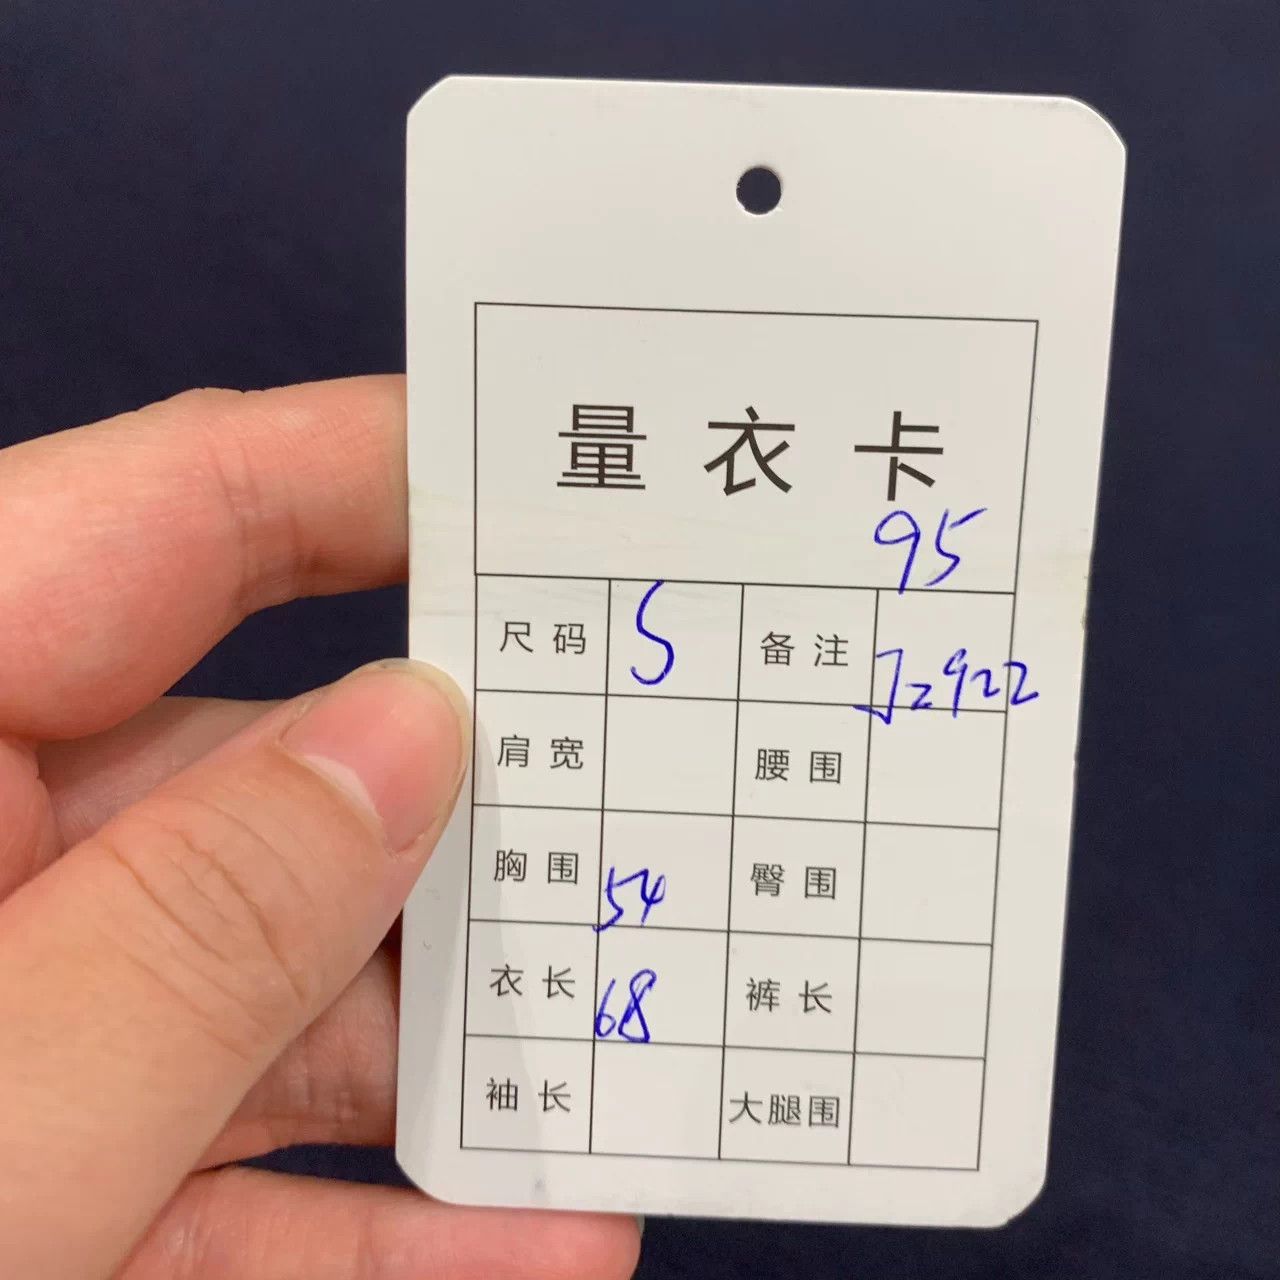 量衣卡
95
尺码 S 备注 J2922
肩宽 腰围
胸围 54 臀围
衣长 68 裤长
袖长 大腿围